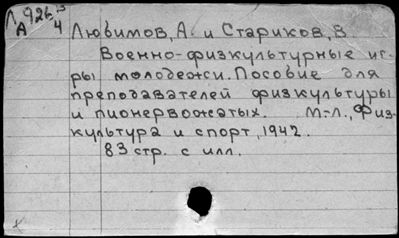 Л 926 13
А 4
Любимов, А. и Стариков, В.
Военно-физкультурные иг-
ры молодежи. Пособие для
преподавателей физкультуры
и пионервожатых. М.-Л., „Физ-
культура и спорт, 1942.
83 стр. с илл.